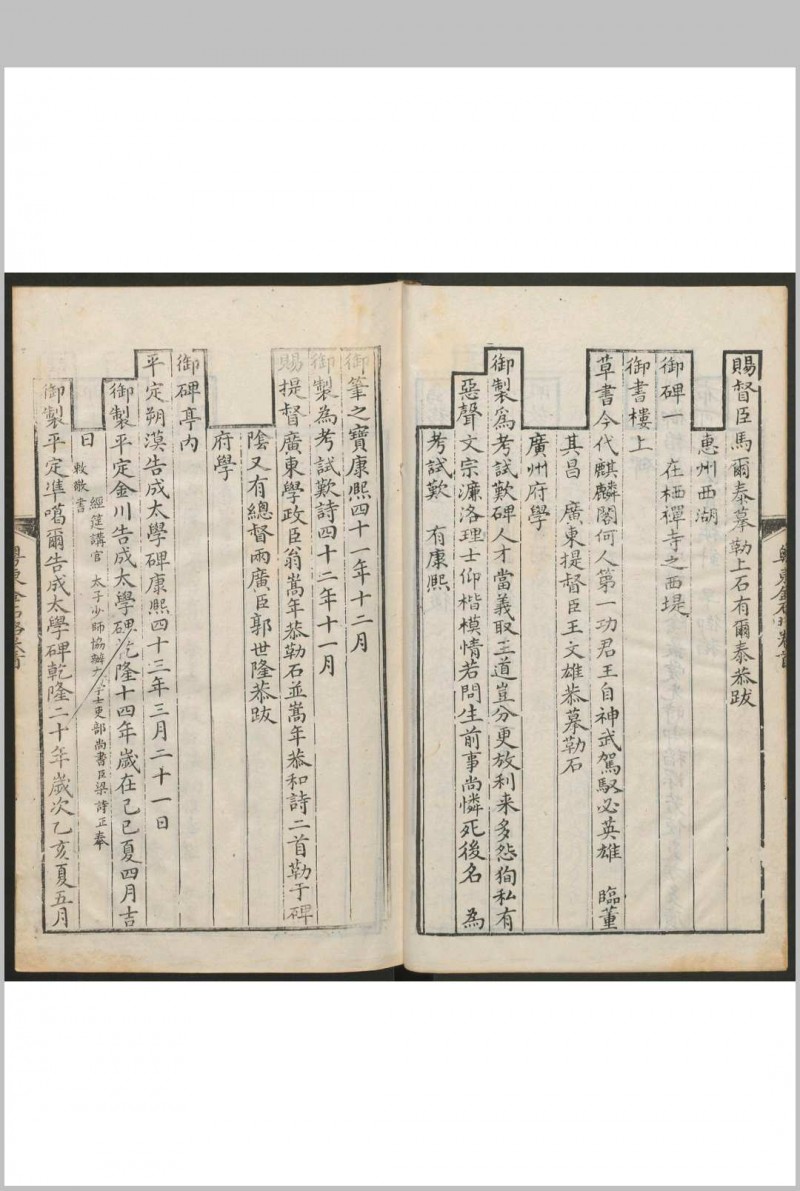 賜督臣馬爾泰摹勒上石有爾泰恭跋
惠州西湖
御碑一　在栖禪寺之西堤
御書樓上
草書今代麒麟閣何人第一功君王自神武駕馭必英雄　臨董
其昌　廣東提督臣王文雄恭摹勒石
廣州府學
御製爲考試歎碑人才當義取王道豈分更放利来多怨狥私有
惡聲文宗濂洛理士仰楷模情若問生前事尚憐死後名　為
考試歎　有康熙
御筆之寶康熙四十一年十二月
御製為考試歎詩四十二年十一月
賜提督廣東學政臣翁嵩年恭勒石並嵩年恭和詩二首勒于碑
陰又有總督兩廣臣郭世隆恭跋
府學
御碑亭內
平定朔漠告成太學碑康熙四十三年三月二十一日
御製平定金川告成太學碑乾隆十四年歲在己巳夏四月吉
日　經筵講官　太子少師協辦大學士吏部尚書臣梁詩正奉
敕敬書
御製平定準噶爾告成太學碑乾隆二十年歲次乙亥夏五月
粵東金石略卷首